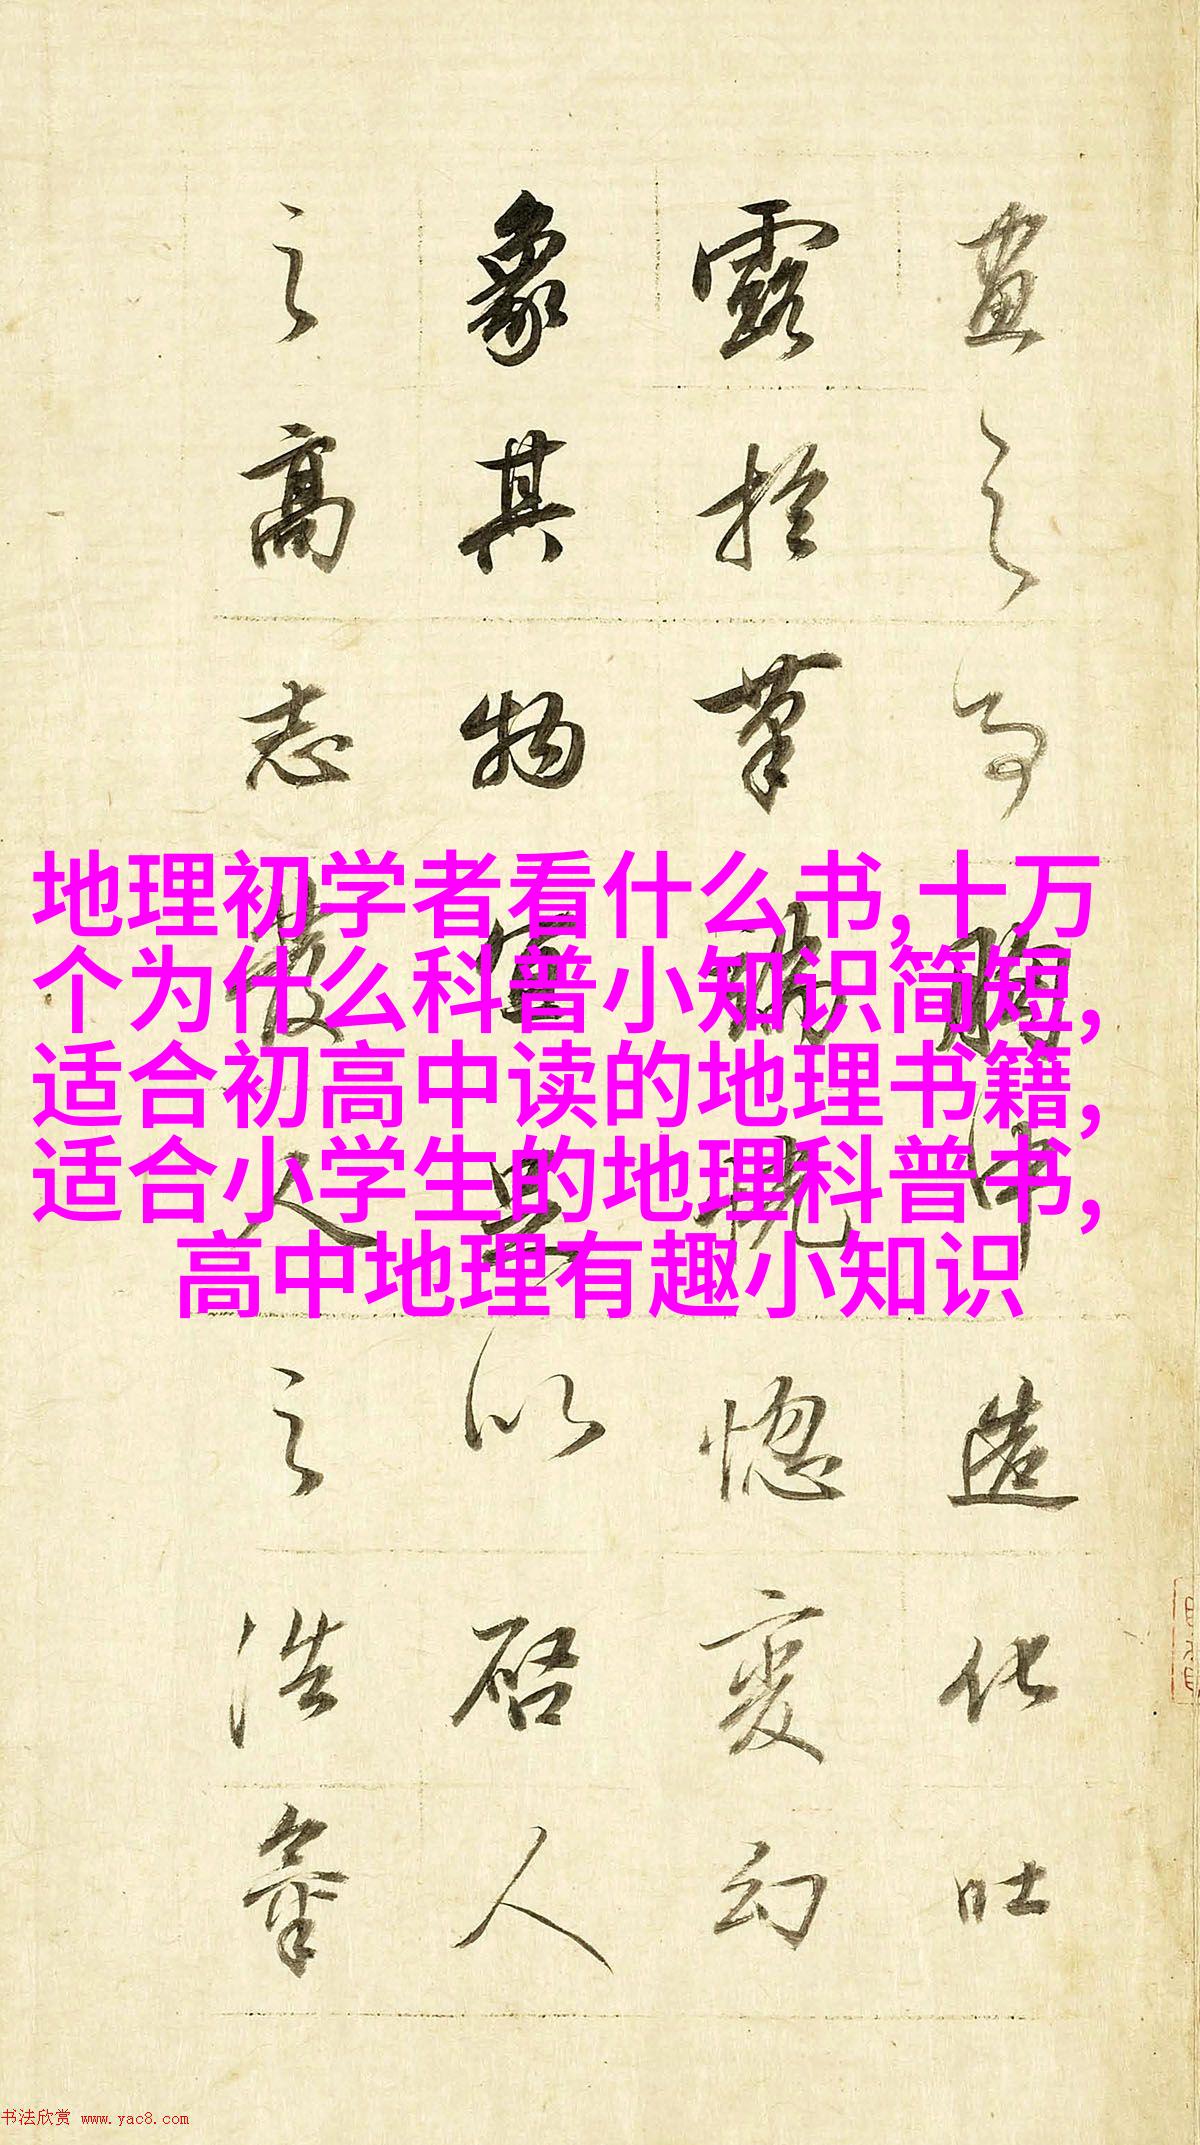 畫之胸中造化吐
露於筆端恍惚變幻
象其物宜以啓人
之高志發人之浩氣
地理初学者看什么书,十万
个为什么科普小知识简短,
适合初高中读的地理书籍,
适合小学生的地理科普书,
高中地理有趣小知识
书法欣赏 www.yac8.com